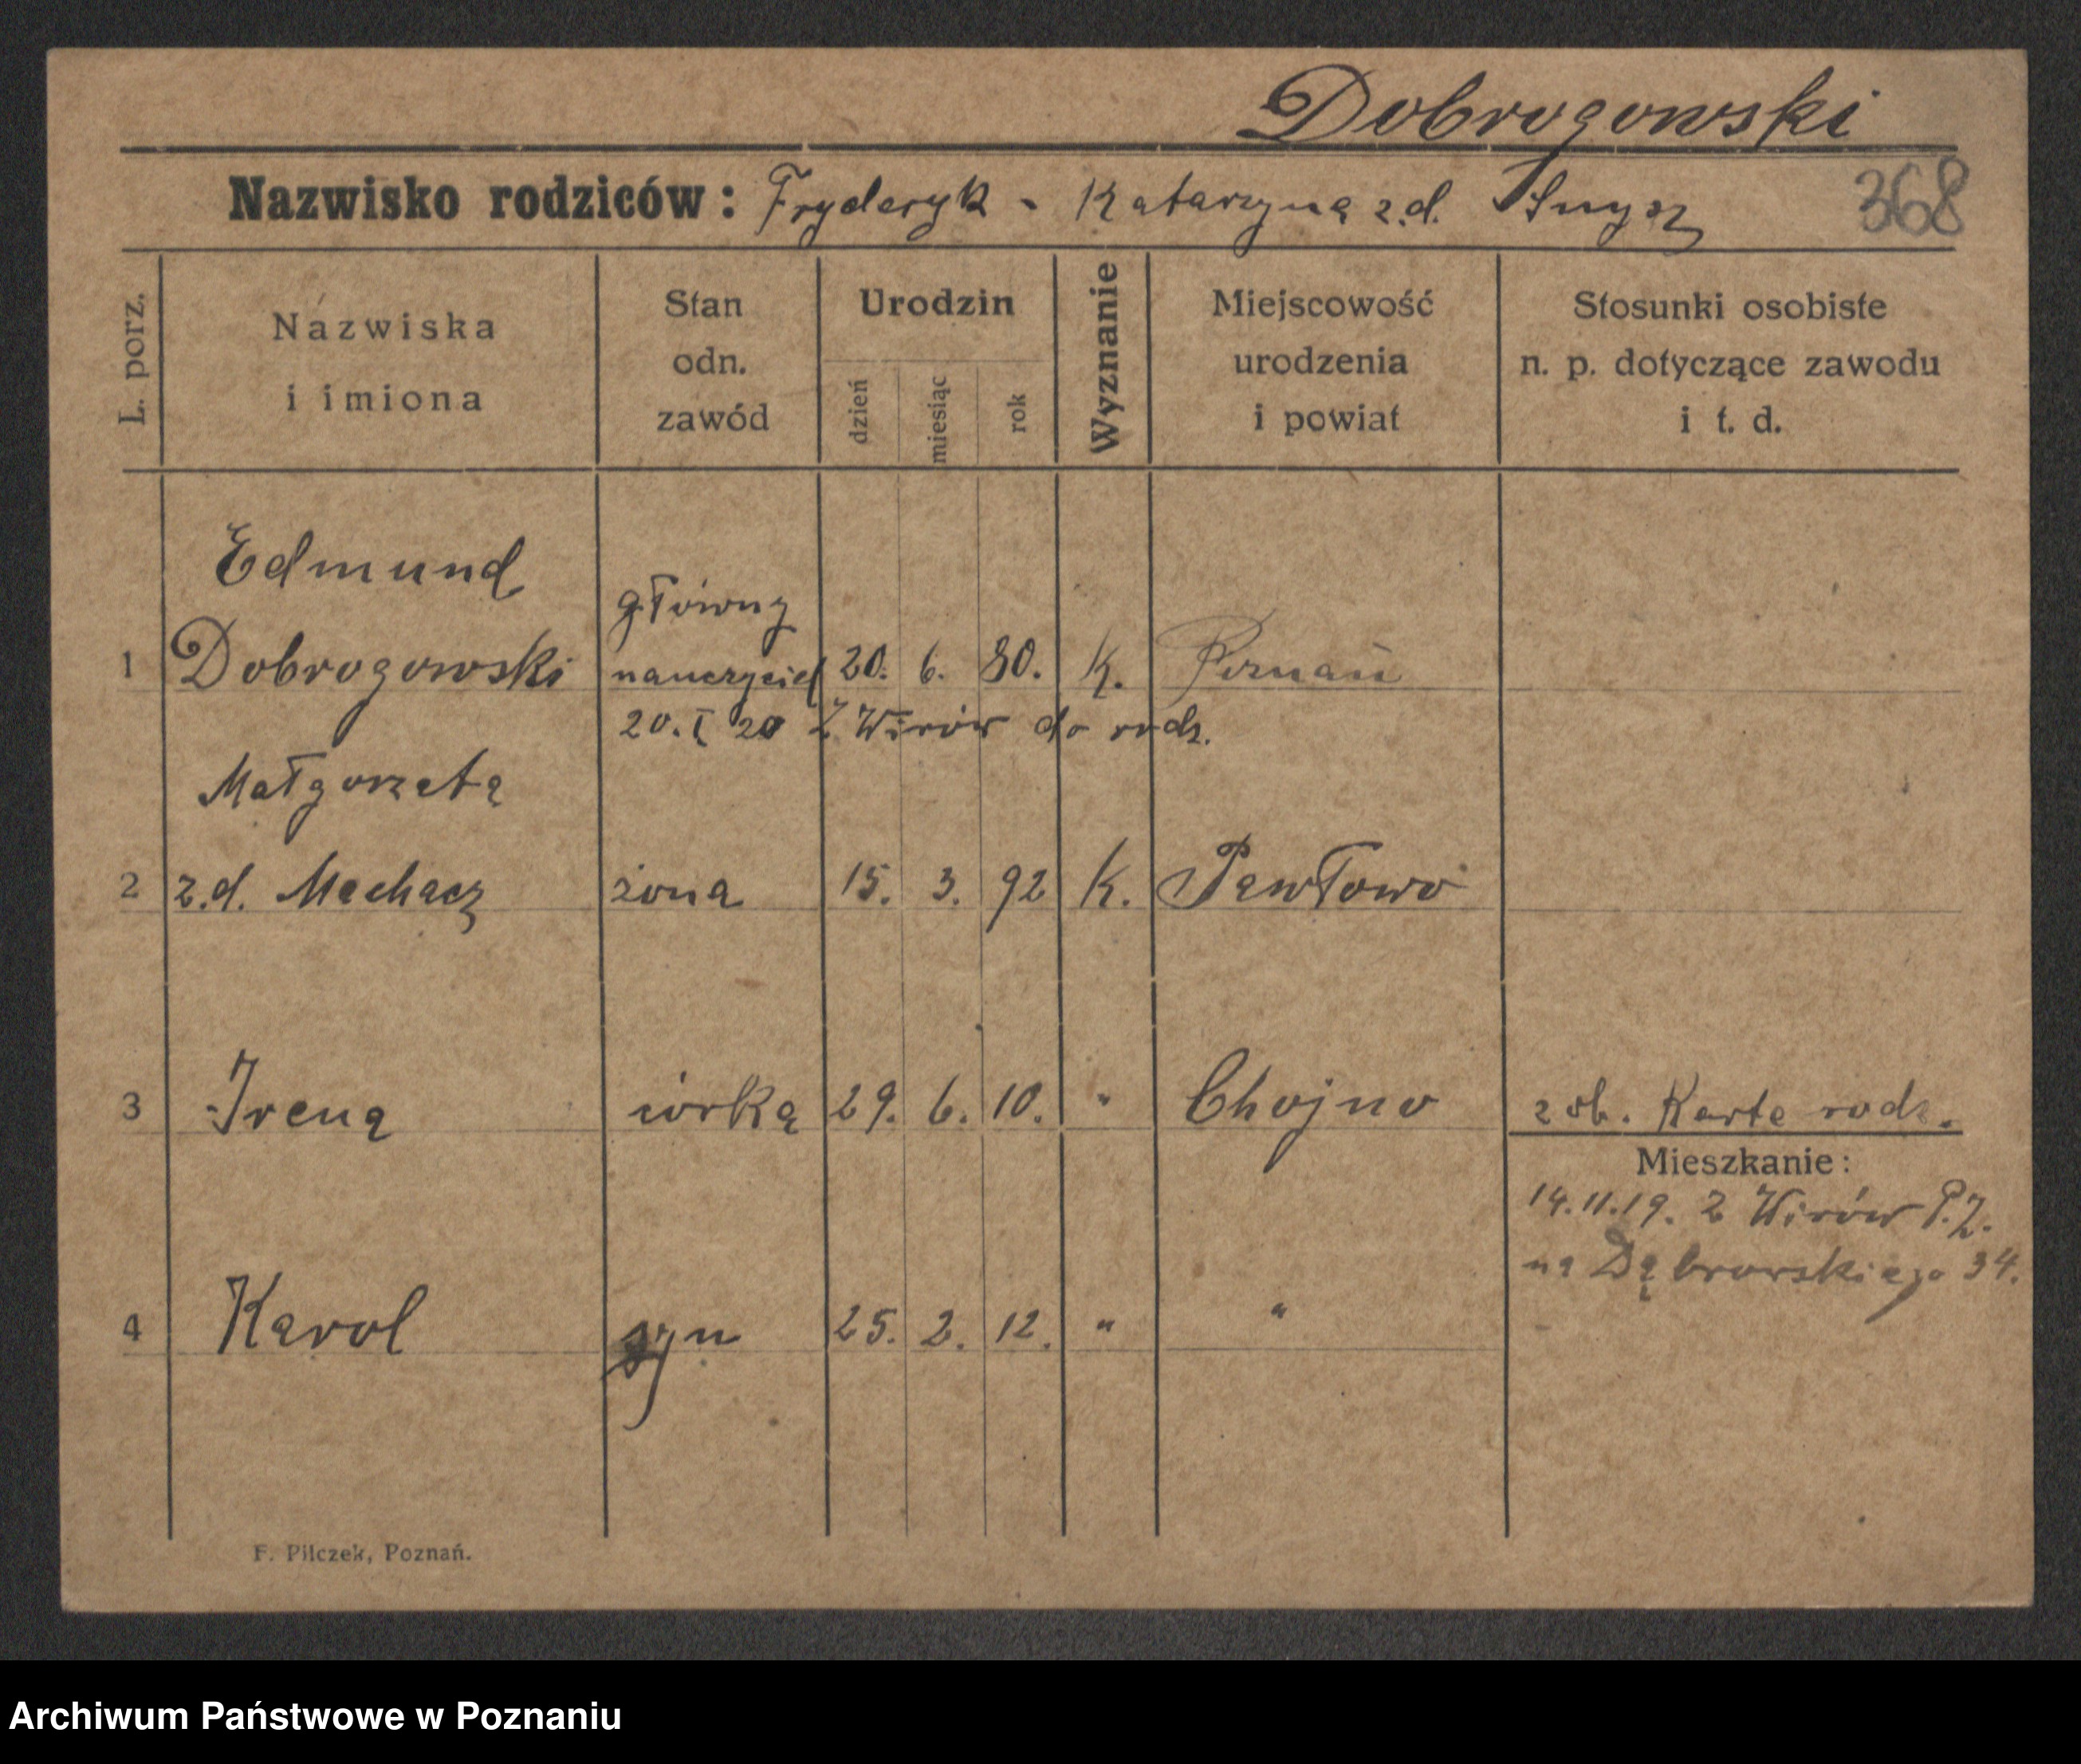 Dobrogowski
Nazwisko rodziców: Fryderyk - Katarzyna z.d.
368
L. porz.
Nazwiska i imiona
Stan odn. zawód
Urodzin
dzień
miesiąc
rok
Wyznanie
Miejscowość urodzenia i powiat
Stosunki osobiste n. p. dotyczące zawodu i t. d.
Edmund
główny
1 Dobrogowski nauczyciel 20. 6. 80. K. Poznań
20. I 20 Z Wirów do rodz.
Małgorzata
2 z.d. Machacz żona 15. 3. 92 K. Pawłowo
3 Irena córka 29. 6. 10. " Chojno zob. Karta rodz.
Mieszkanie:
14.11.19. Z Wirów P.Z.
na Dąbrowskiego 34.
4 Karol syn 25. 2. 12. " "
F. Pilczek, Poznań.
Archiwum Państwowe w Poznaniu